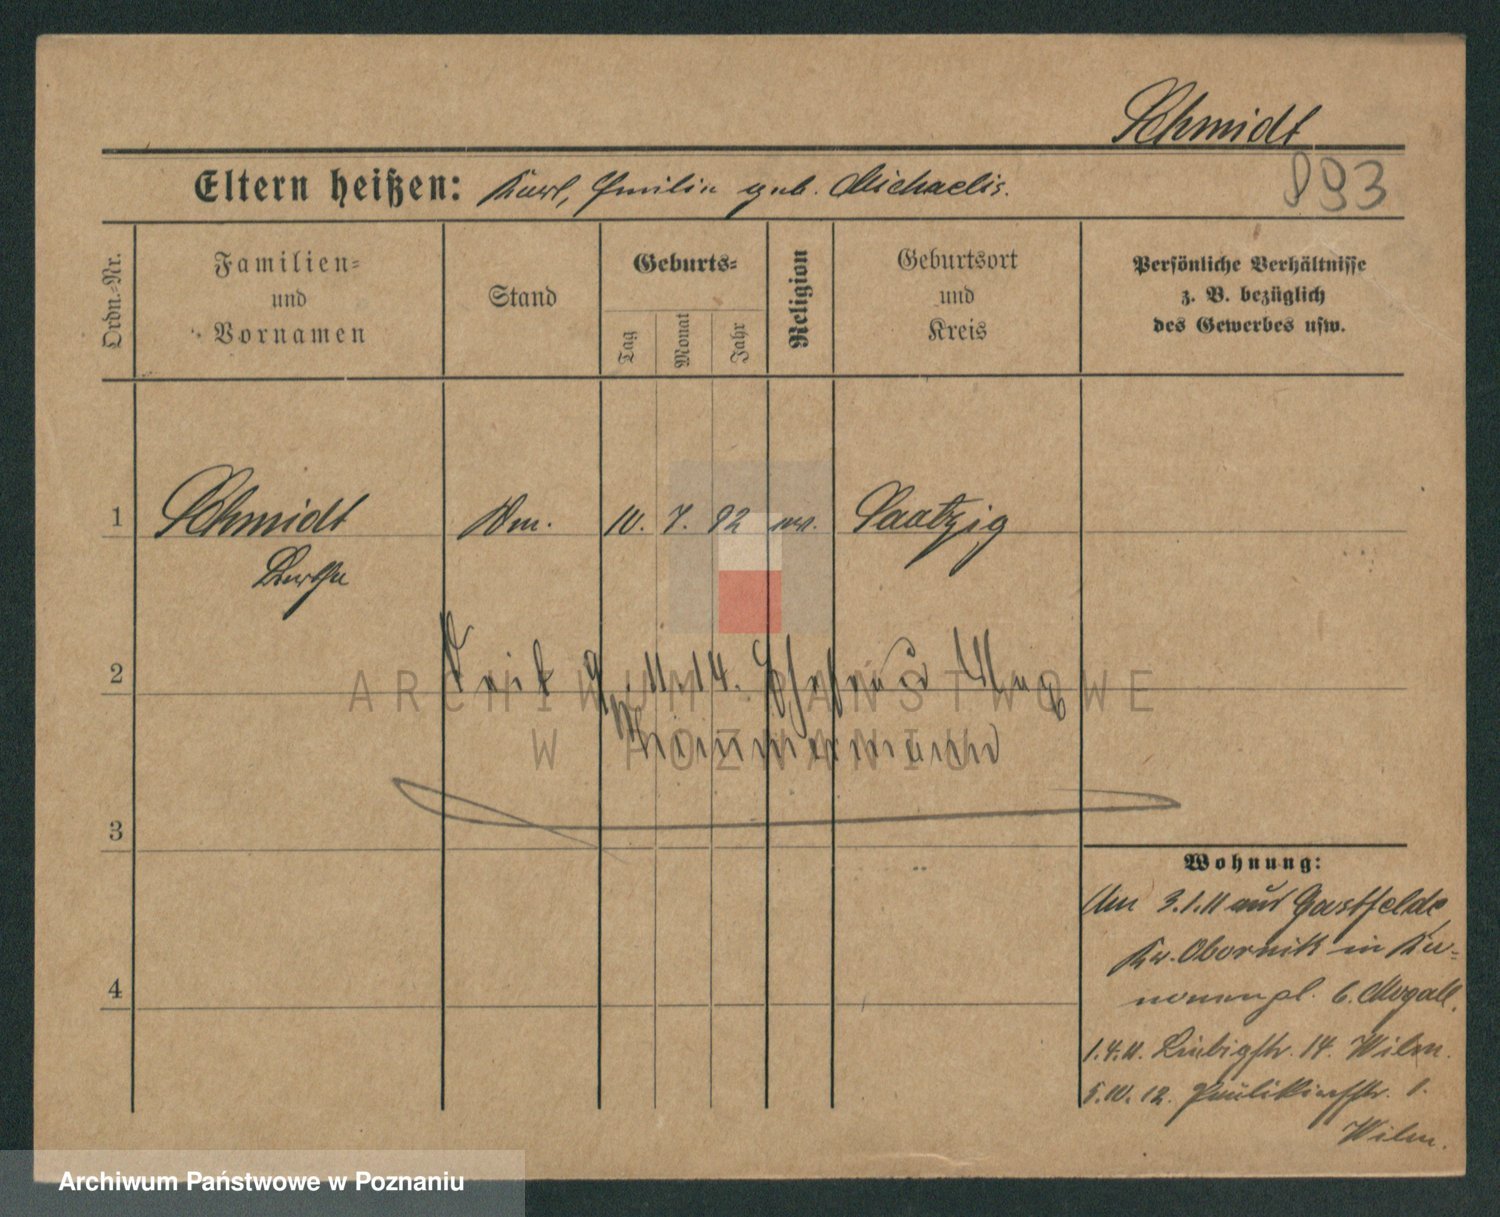 Schmidt
893
Eltern heißen: Karl, Emilie geb. Michaelis.
Ordn.-Nr.
Familien-
und
Vornamen
Stand
Geburts-
Tag
Monat
Jahr
Religion
Geburtsort
und
Kreis
Persönliche Verhältnisse
z. B. bezüglich
des Gewerbes usw.
1 Schmidt 10. 7. 92 ev. Saatzig
2 11. 14. Ehefrau
3
4
ARCHIWUM PAŃSTWOWE
W POZNANIU
Wohnung:
Am 3.1.11 aus Gastfelde,
Kr. Obornik in
6. Mogall.
1.4.11. Liebigstr. 14. Wilm.
5.10.12. Paulikirchstr. 1.
Wilm.
Archiwum Państwowe w Poznaniu